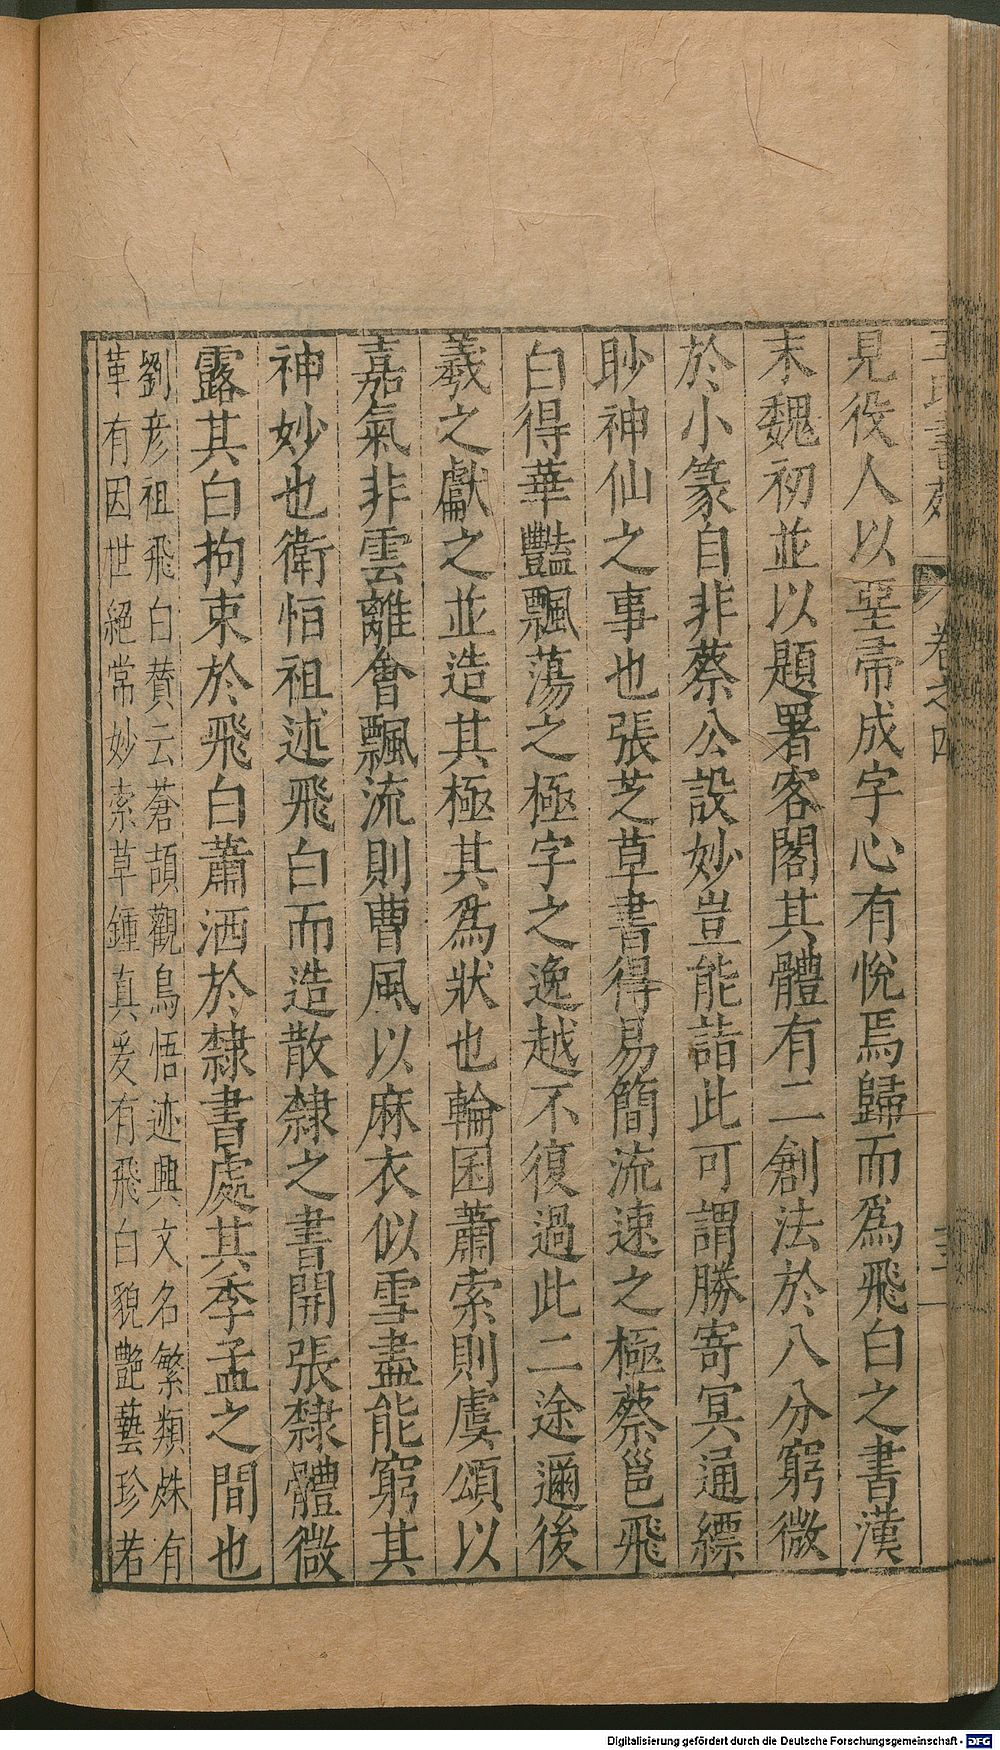 王氏書苑 卷之四
見役人以堊帚成字心有悅焉歸而爲飛白之書漢
末魏初並以題署客閣其體有二創法於八分窮微
於小篆自非蔡公設妙豈能詣此可謂勝寄冥通縹
眇神仙之事也張芝草書得易簡流速之極蔡邕飛
白得華豔飄蕩之極字之逸越不復過此二途邇後
羲之獻之並造其極其爲狀也輪囷蕭索則虞頌以
嘉氣非雲離會飄流則曹風以麻衣似雪盡能窮其
神妙也衛恒祖述飛白而造散隸之書開張隸體微
露其白拘束於飛白蕭洒於隸書處其季孟之間也
劉彥祖飛白賛云蒼頡觀鳥悟迹興文名繁類殊有
革有因世絕常妙索草鍾真爰有飛白貌艷藝珍若
Digitalisierung gefördert durch die Deutsche Forschungsgemeinschaft - DFG